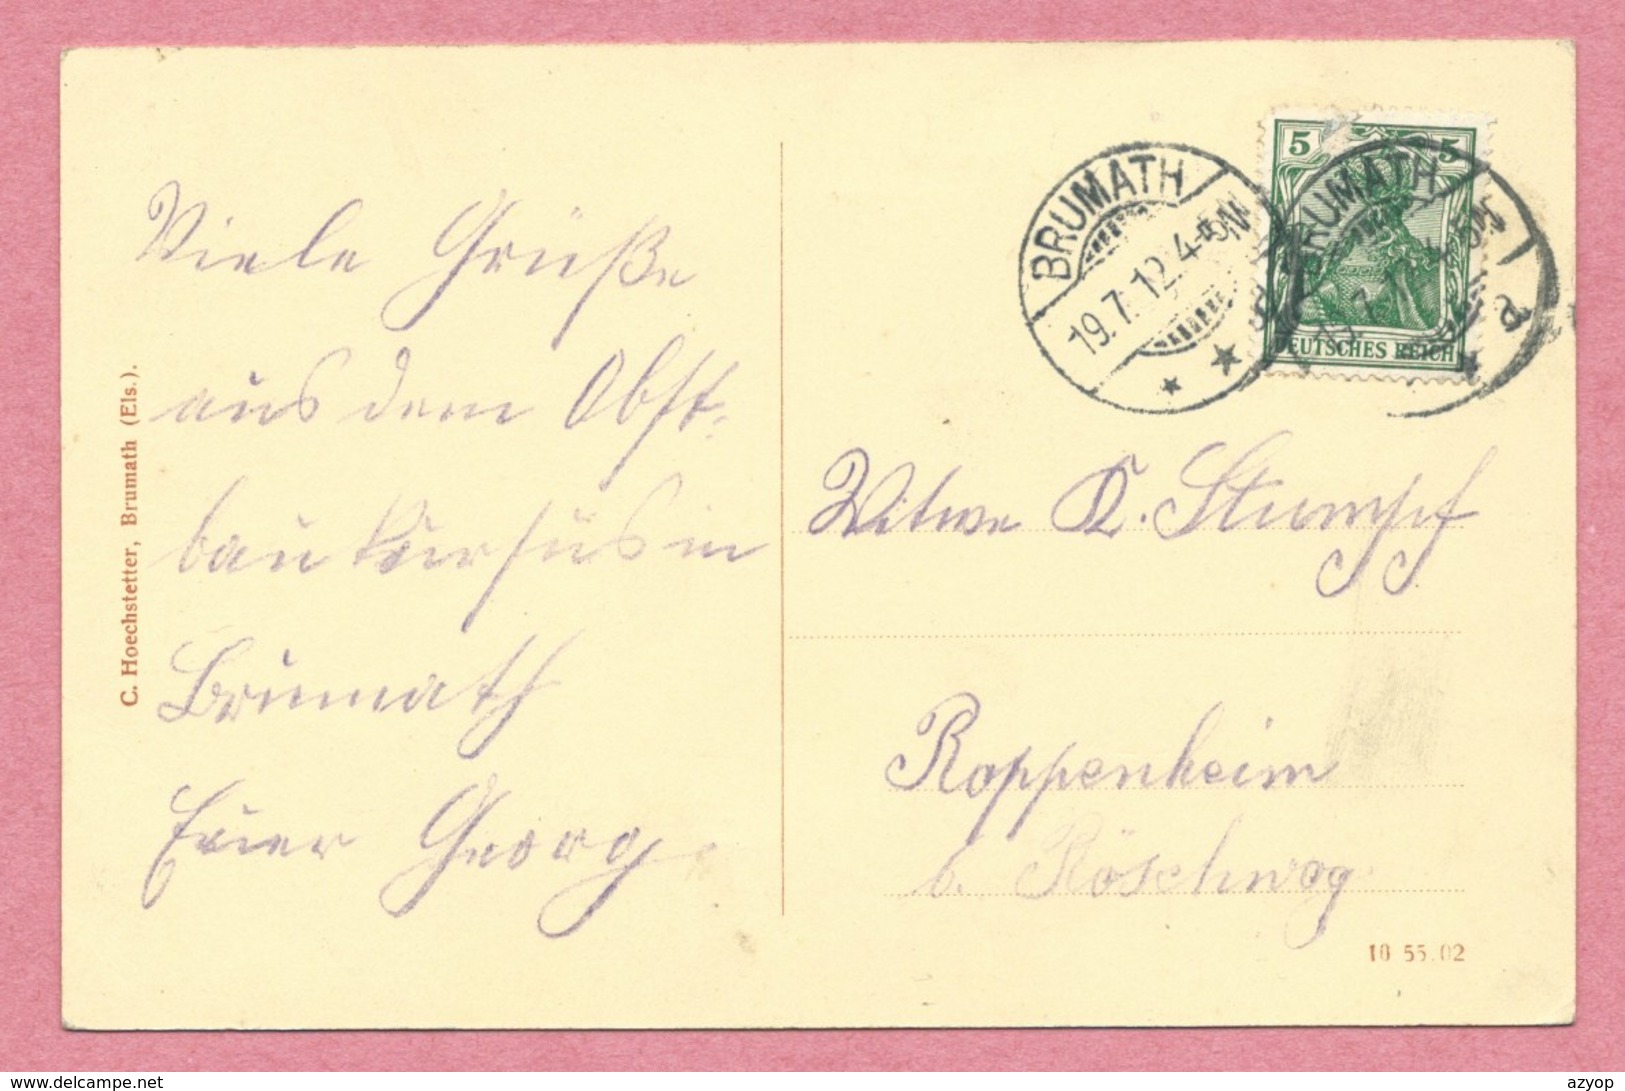 Viele Grüße
aus dem Obst-
bau Kursus in
Brumath
Euer Georg.
C. Hoechstetter, Brumath (Els.).
BRUMATH
19.7.12. 4-5N
BRUMATH
5 5
DEUTSCHES REICH
Witwe K. Stumpf
Roppenheim
b. Röschwog
18 55.02
www.delcampe.net
azyop